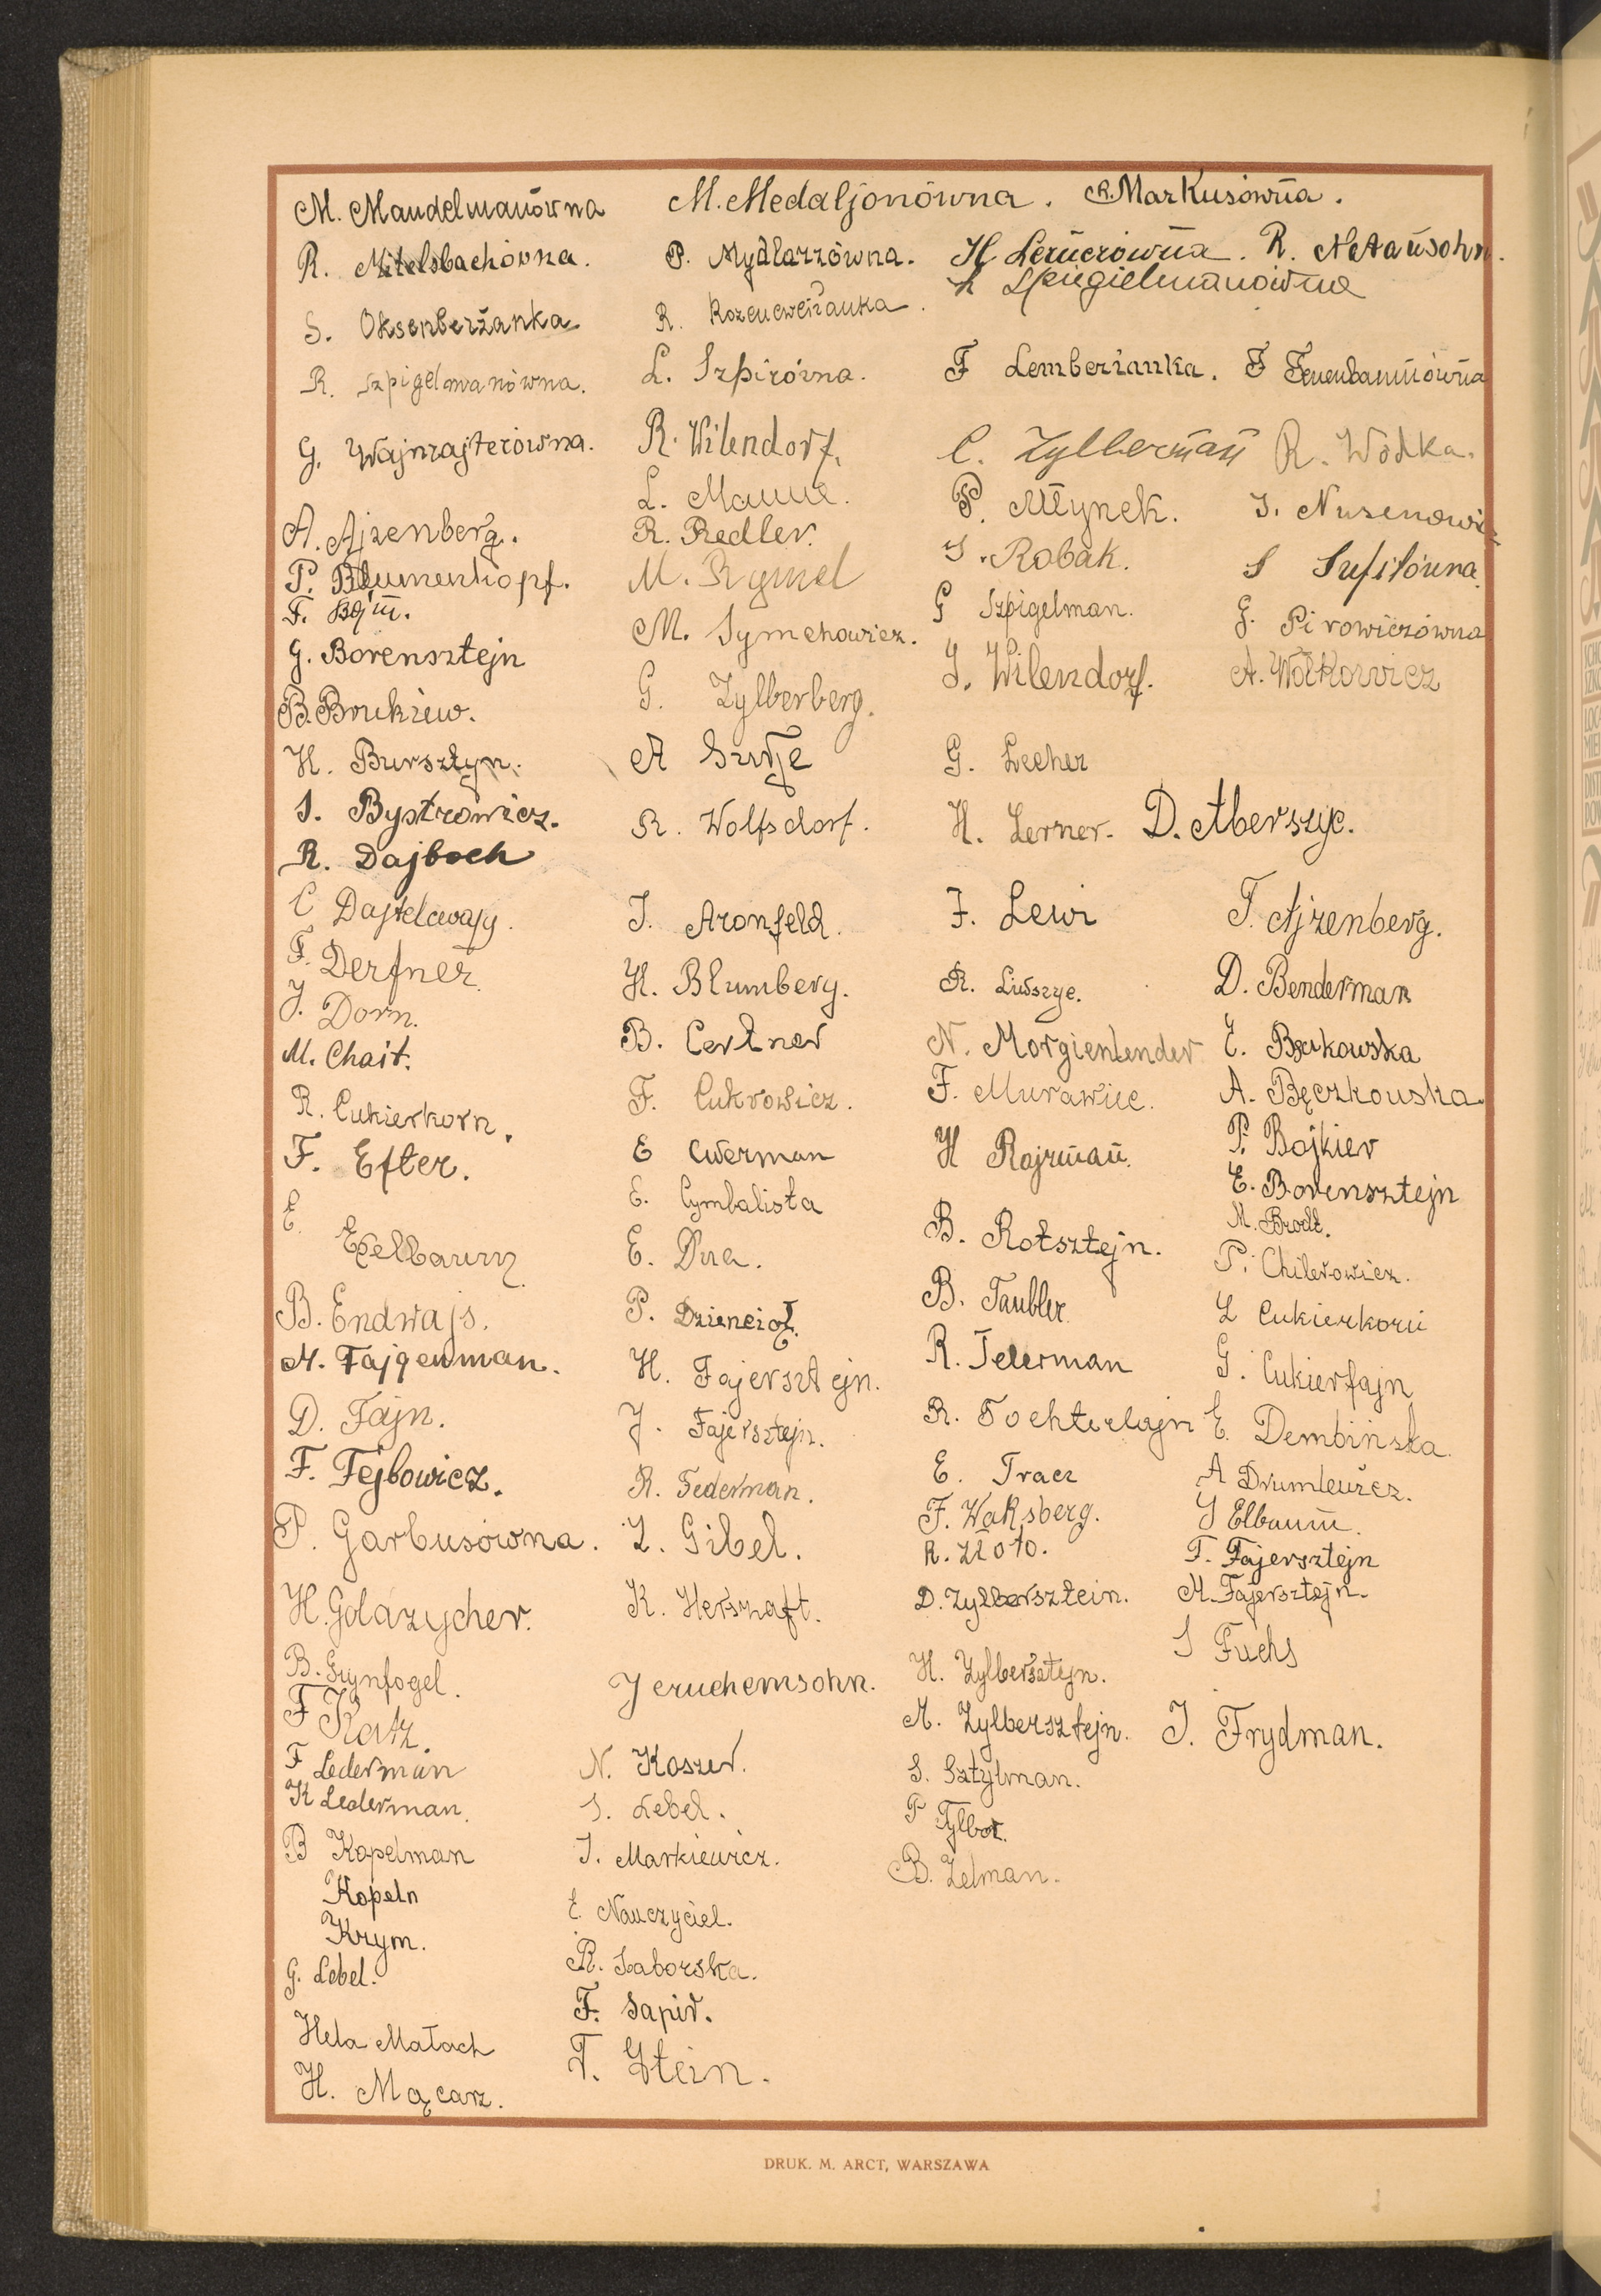 M. Mandelmanówna
R. Mitelsbachówna.
S. Oksenberżanka
R. Szpigelmanówna.
G. Wajnrajterówna.
A. Ajzenberg.
P. Blumenkopf.
F. Bojm.
G. Borensztejn
B. Brukiew.
H. Bursztyn.
S. Bystrowicz.
R. Dajboch
C Dajtelcwajg.
F. Derfner
J. Dorn.
M. Chait.
R. Cukierkorn.
F. Efter.
E. Ezelbaum
B. Endwajs.
M. Fajgenman.
D. Fajn.
F. Fejbowicz.
P. Garbusówna.
H. Golazycher.
B. Grynfogel.
F Katz.
F Lederman
K Lederman.
B Kopelman
Kopeln
Krym.
G. Lebel.
Hela Małach
H. Mącarz.
M. Medaljonówna.
P. Mydlarzówna.
R. Rozencwejżanka.
L. Szpirówna.
R. Wilendorf.
L. Manne.
R. Redler.
M. Rymel
M. Symchowicz.
G. Zylberberg.
A
R. Wolfsdorf.
J. Aronfeld.
H. Blumberg.
B. Certner
F. Cukrowicz.
E Cwerman
E. Cymbalista
E. Dua.
P. Dziencioł.
H. Fajersztejn.
J. Fajersztejn.
R. Federman.
L. Gibel.
K. Herszaft.
Jeruchemsohn.
N. Koszer.
S. Lebel.
J. Markiewicz.
E. Nauczyciel.
R. Saborska.
F. Sapir.
T. Sztein.
R. Markusówna.
H Lernerówna. R. Natansohn.
Szpiegielmanówna
F Lemberżanka. F Tenenbaumówna
C. Zylberman R. Wódka.
P. Młynek. S. Nusenowicz
S. Robak. S Sufitówna.
G Szpigelman. G. Pirowiczówna
J. Wilendorf. A. Wołkowicz
G. Lecher
H. Lerner. D. Aberszyc.
F. Lewi
R. Liwszyc.
N. Morgienlender
F. Murawiec.
H Rajzman.
B. Rotsztejn.
B. Taubler
R. Telerman
R. Tochterlajn
E. Tracz
F. Waksberg.
R. Złoto.
D. Zylbersztein.
H. Zylbersztejn.
M. Zylbersztejn.
S. Sztylman.
P Tylbor.
B. Zelman.
T. Ajzenberg.
D. Benderman
E. Bąkowska
A. Bęczkowska.
P. Bojkier
E. Borensztejn
M. Brodt.
P. Chilerowicz.
L Cukierkorn
G. Cukierfajn
E. Dembińska.
A Drumlewicz.
J Elbaum.
F. Fajersztejn
M. Fajersztejn.
S Fuchs
J. Frydman.
DRUK. M. ARCT, WARSZAWA